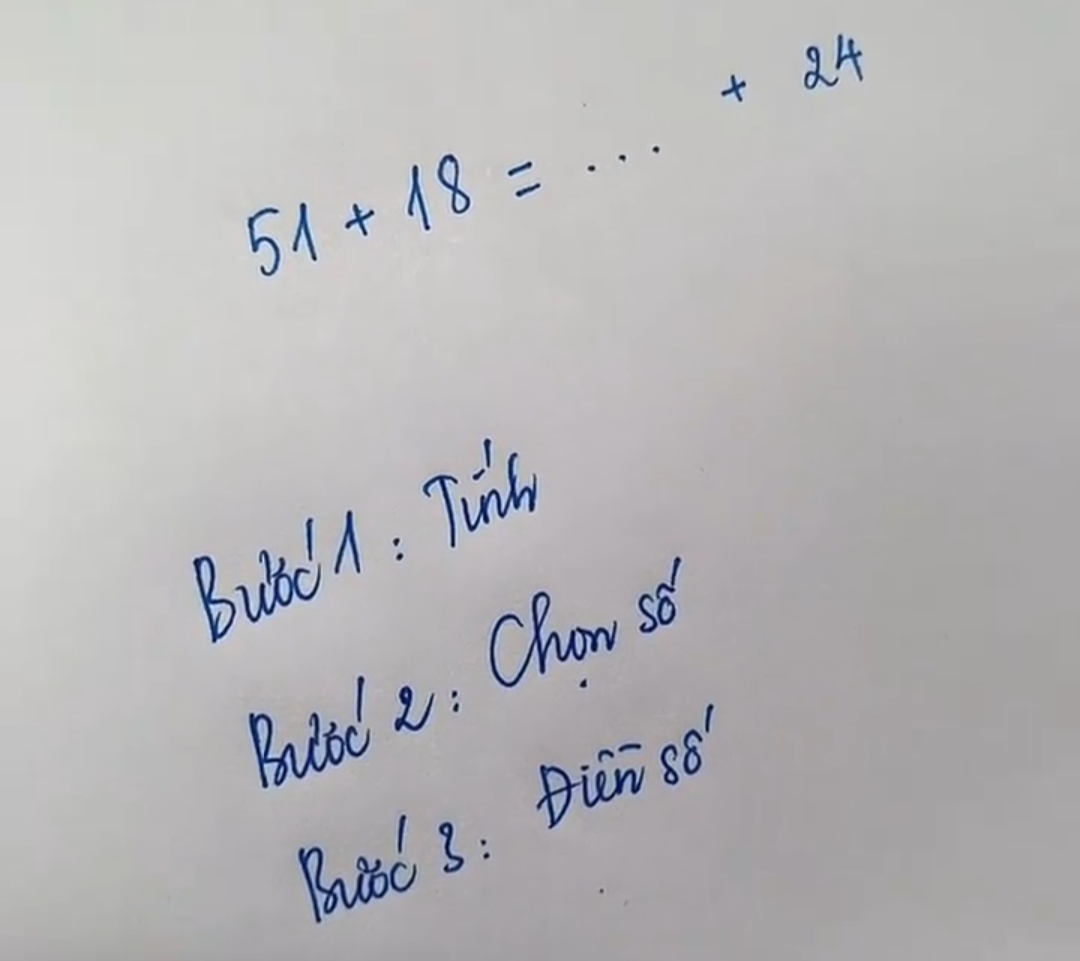 51 + 18 = ... + 24
Bước 1 : Tính
Bước 2 : Chọn số
Bước 3 : Điền số